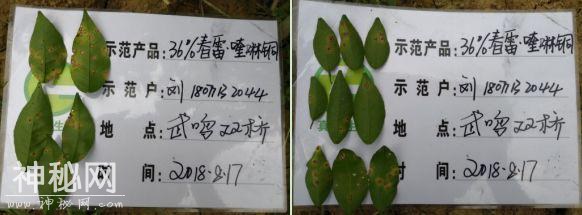 示范产品:36%春雷·喹啉铜
示范户:刘 18077132044
地点:武鸣双桥
时间:2018.8.17
神秘网
WWW.SHENMIW.COM
示范产品:36%春雷·喹啉铜
示范户:刘 18077132044
地点:武鸣双桥
时间:2018.8.17
神秘网
WWW.SHENMIW.COM